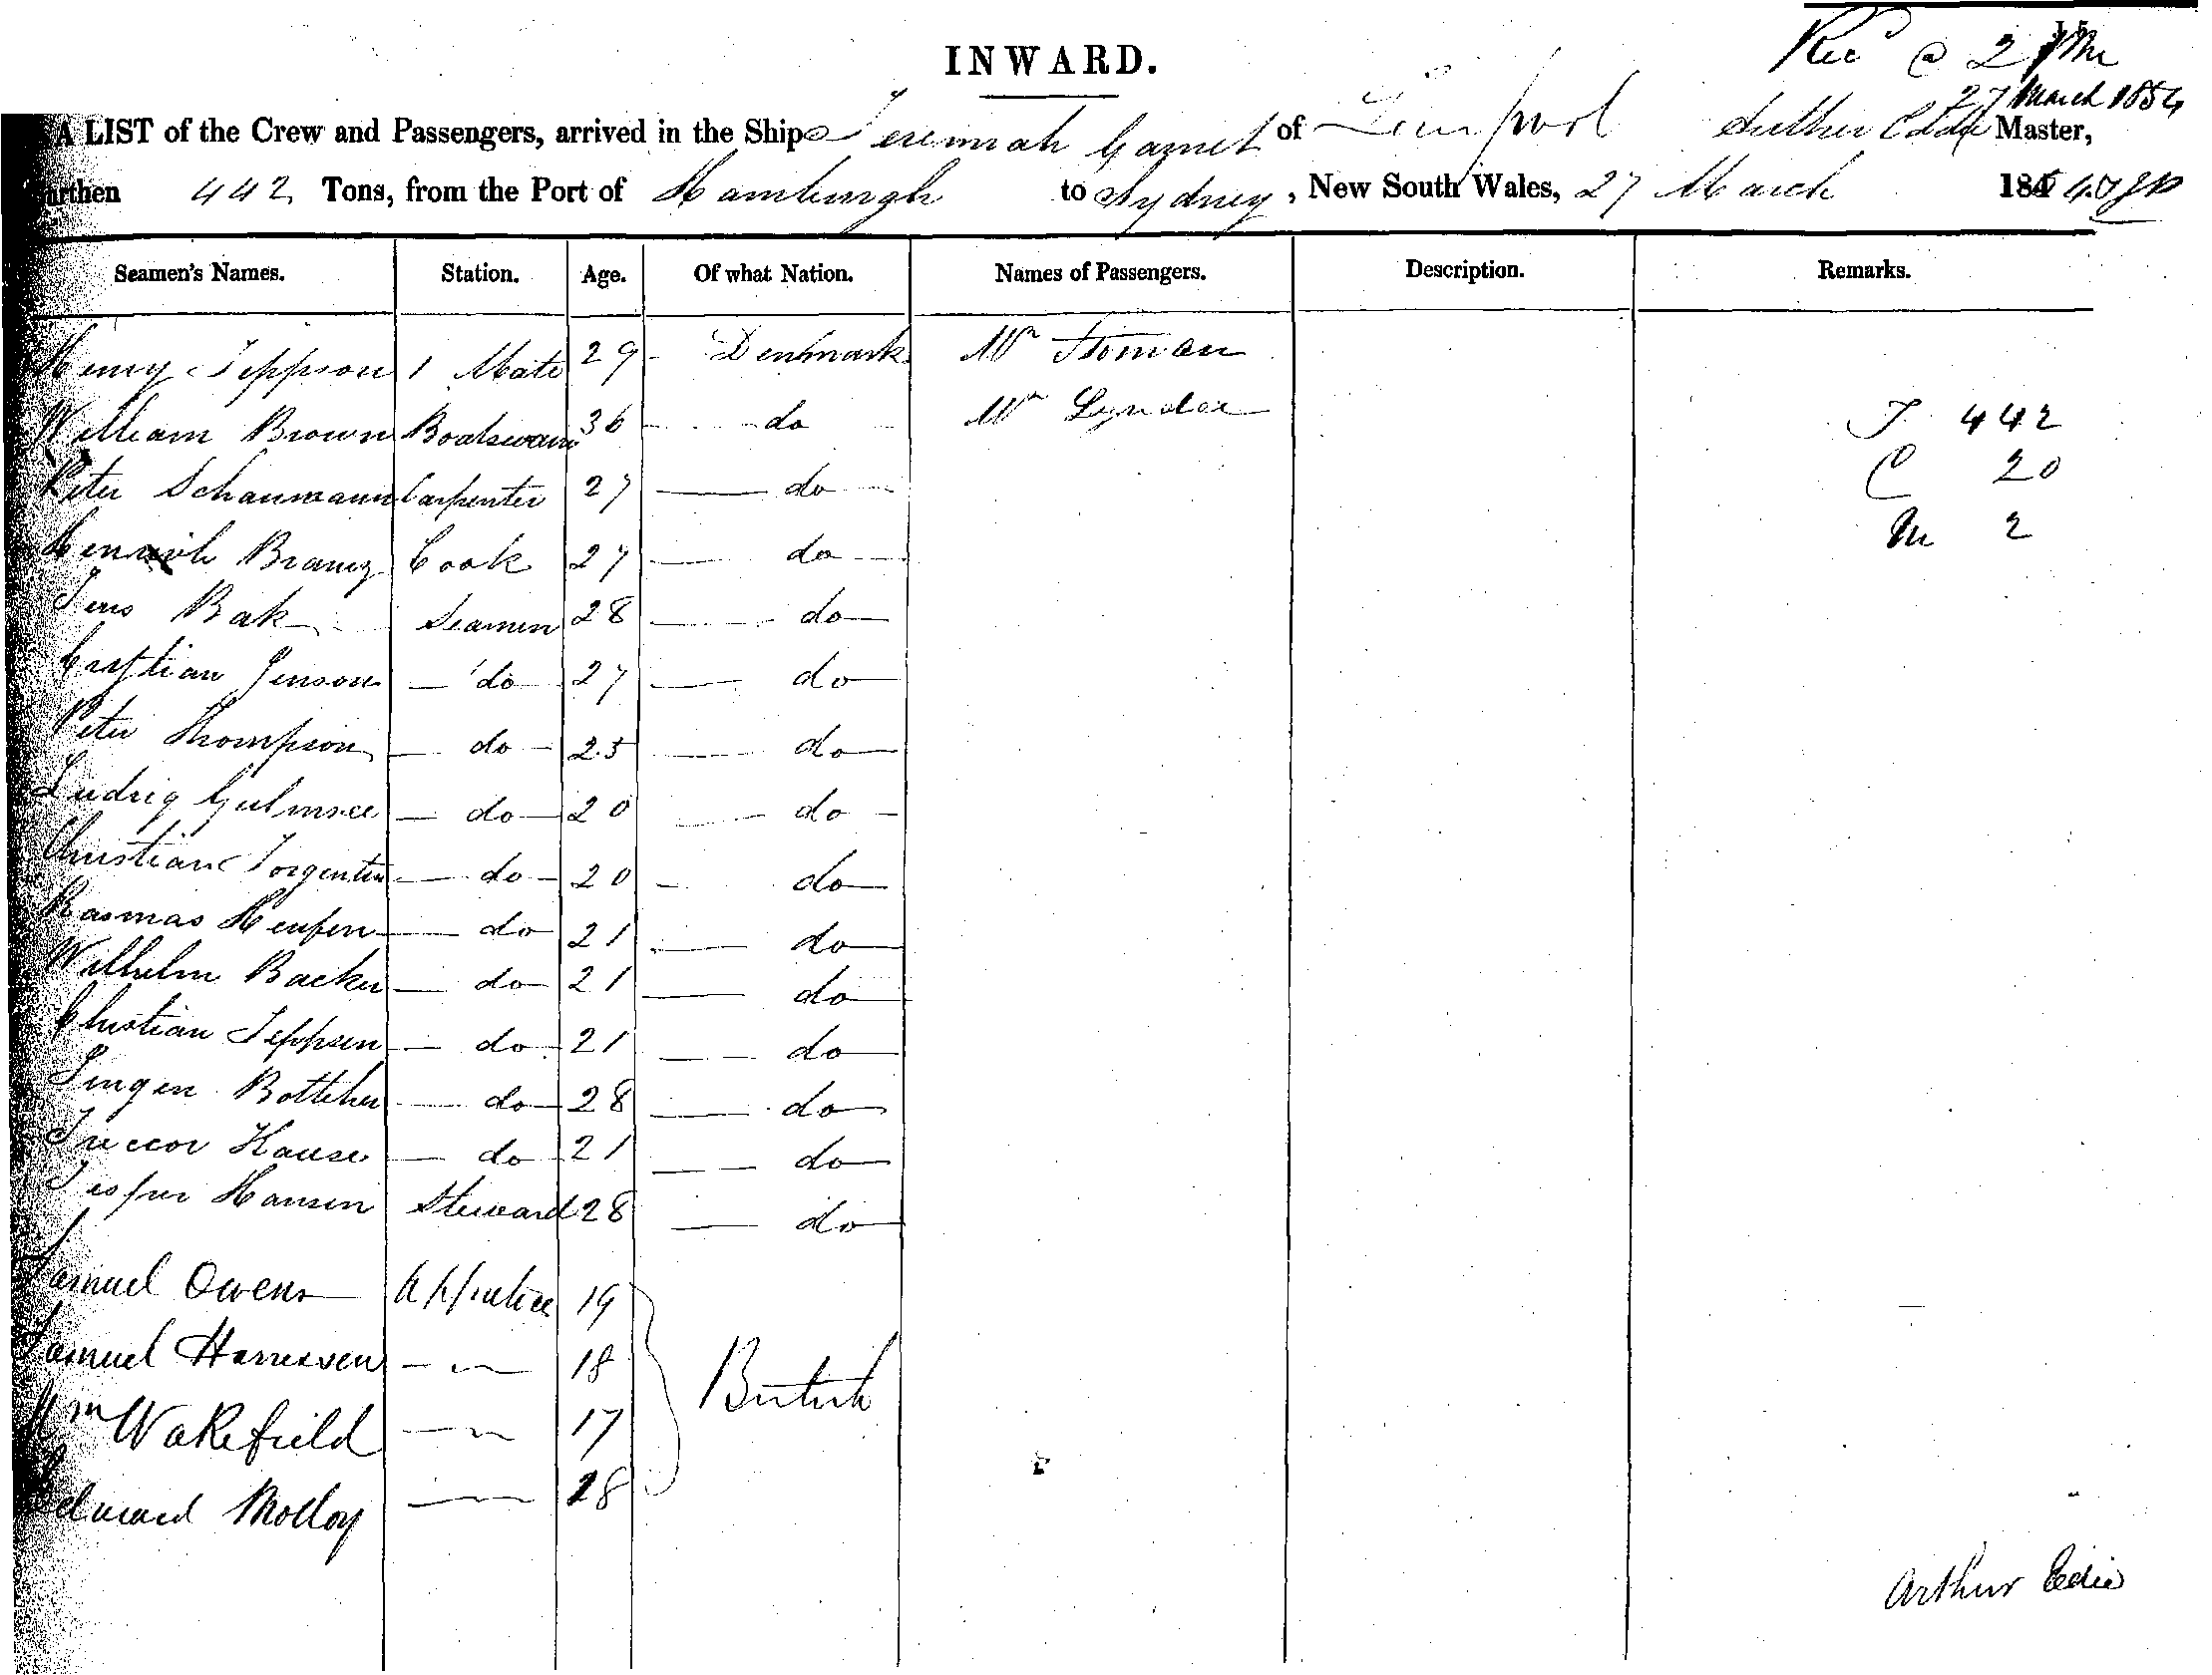 INWARD.
Rec @ 2 PM
27 March 1854
A LIST of the Crew and Passengers, arrived in the Ship Jeremiah Garnet of Liverpool Arthur Eddie Master,
Burthen 442 Tons, from the Port of Hamburgh to Sydney, New South Wales, 27 March 1854
Seamen's Names. Station. Age. Of what Nation. Names of Passengers. Description. Remarks.
Henry Jeppson 1 Mate 29 Denmark Mr
William Brown Boatswain 36 do Mr T. 442
Peter Schaumann Carpenter 27 do C 20
Henrich Cook 27 do M 2
Jens Bak Seamen 28 do
Cristian Jenson do 27 do
Peter Thompson do 25 do
Ludvig do 20 do
Christian do 20 do
Rasmas do 21 do
Wilhelm Backer do 21 do
Christian Jeppsen do 21 do
Bottcher do 28 do
do 21 do
Jesper Hansen Steward 28 do
Samuel Owens Apprentice 19
Samuel 18 British
Wm Wakefield 17
Edward Molloy 18
Arthur Edie